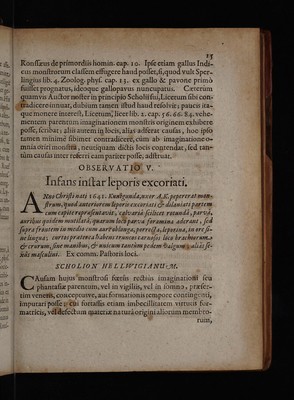 15
Ronssæus de primordiis homin. cap. 10. Ipse etiam gallus Indi-
cus monstrorum classem effugere haud posset, si, quod vult Sper-
lingius lib. 4. Zoolog. phys. cap. 13. ex gallo & pavone primò
fuisset prognatus, ideoque gallopavus nuncupatus. Cæterùm
quamvis Auctor noster in principio Scholii sui, Licetum sibi con-
tradicere innuat, dubium tamen istud haud resolvit; paucis ita-
que monere interest, Licetum, licet lib. 2. cap. 56. 66. 84. vehe-
mentem parentum imaginationem monstris originem exhibere
posse, scribat; aliis autem in locis, alias asserat causas, hoc ipso
tamen minimè sibimet contradicere, cum ab imaginatione o-
mnia oriri monstra, neutiquam dictis locis contendat, sed tan-
tùm causas inter referri eam pariter posse, adstruat.
OBSERVATIO V.
Infans instar leporis excoriati.
ANno Christi nati 1641. Kunigunda, uxor A.K. pepererat mon-
strum, quod anteriorem leporis excoriati & dilaniati partem
cum capite repræsentavit, calvariâ scilicet rotundâ, parvâ,
auribus penitus mutilatâ, quarum loco parva foramina aderant, sed
supra frontem in medio cum aure oblonga, porrectâ, leporina, in ore si-
ne lingua: cortos præterea habens truncos carnosos loco brachiorum
& crurum, sine manibus, & unicum tantùm pedem
nàs masculini. Ex commun. Pastoris loci.
SCHOLION HELLWIGIANUM.
CAusam hujus monstrosi foetûs rectiùs imaginationi seu
phantasiæ parentum, vel in vigiliis, vel in somno, præser-
tim veneris, conceptusve, aut formationis tempore contingenti,
imputari posse; cui fortassis etiam imbecillitatem virtutis for-
matricis, vel defectum materiæ naturâ origini aliorum membro-
rum,